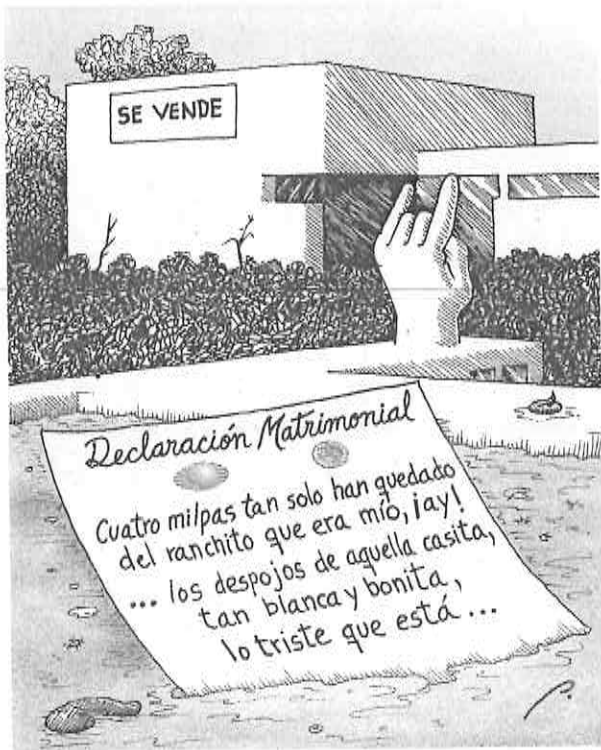 SE VENDE
Declaración Matrimonial
Cuatro milpas tan solo han quedado
del ranchito que era mío, ¡ay!
... los despojos de aquella casita,
tan blanca y bonita,
lo triste que está ...